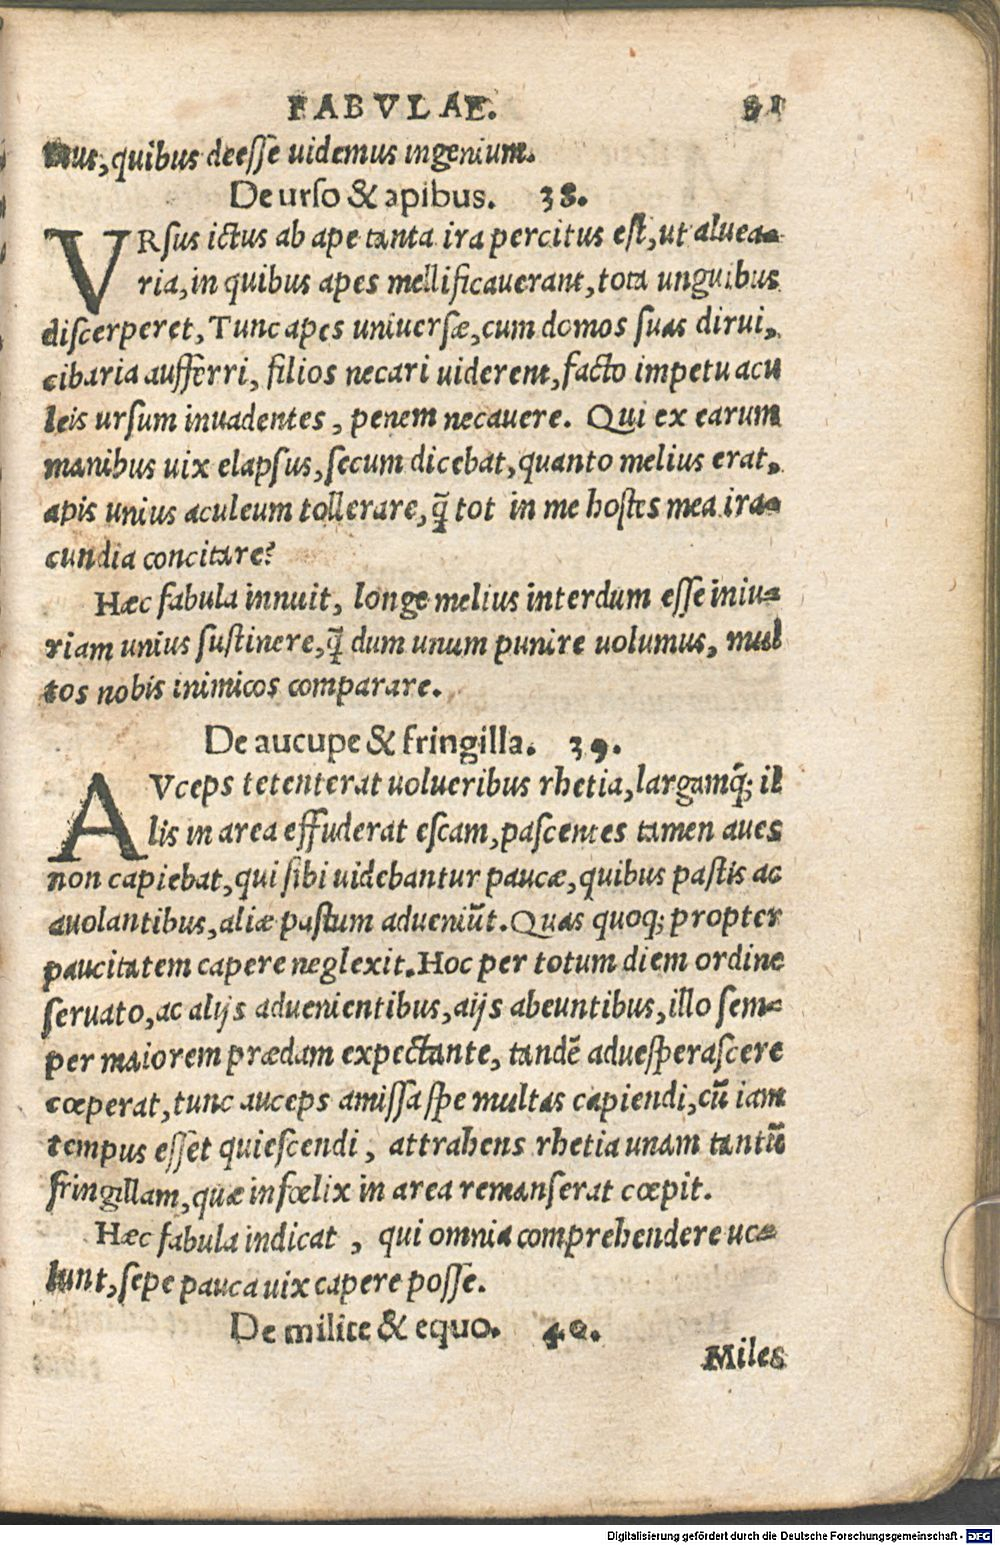 FABVLAE. 81
mus, quibus deesse uidemus ingenium.
De urso & apibus. 38.
VRsus ictus ab ape tanta ira percitus est, ut aluea-
ria, in quibus apes mellificauerant, tota unguibus
discerperet, Tunc apes uniuersæ, cum domos suas dirui,
cibaria aufferri, filios necari uiderent, facto impetu acu
leis ursum inuadentes, penem necauere. Qui ex earum
manibus uix elapsus, secum dicebat, quanto melius erat,
apis unius aculeum tollerare, q̃ tot in me hostes mea ira-
cundia concitare?
Hæc fabula innuit, longe melius interdum esse iniu-
riam unius sustinere, q̃ dum unum punire uolumus, mul
tos nobis inimicos comparare.
De aucupe & fringilla. 39.
AVceps tetenterat uolueribus rhetia, largamq́; il
lis in area effuderat escam, pascentes tamen aues
non capiebat, qui sibi uidebantur paucæ, quibus pastis ac
auolantibus, aliæ pastum adueniũt. Quas quoq; propter
paucitatem capere neglexit. Hoc per totum diem ordine
seruato, ac alijs aduenientibus, aijs abeuntibus, illo sem-
per maiorem prædam expectante, tandẽ aduesperascere
cœperat, tunc auceps amissa spe multas capiendi, cũ iam
tempus esset quiescendi, attrahens rhetia unam tantũ
fringillam, quæ infœlix in area remanserat cœpit.
Hæc fabula indicat, qui omnia comprehendere uo-
lunt, sepe pauca uix capere posse.
De milite & equo. 40.
Miles
Digitalisierung gefördert durch die Deutsche Forschungsgemeinschaft - DFG